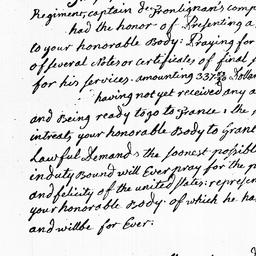 Regiment, captain De frontignan's comp
had the honor of Presenting a
to your honorable Body: Praying for
of several Notes or certificates of final
for his services. amounting 337 Dollar
having not yet received any a
and Being ready to go to France, the
intreats, your honorable Body to Grant
Lawful Demand, the soonest possible
in duty Bound will Ever pray for the p
and felicity of the united states: represen
your honorable Body: of which he ha
and will be for Ever: